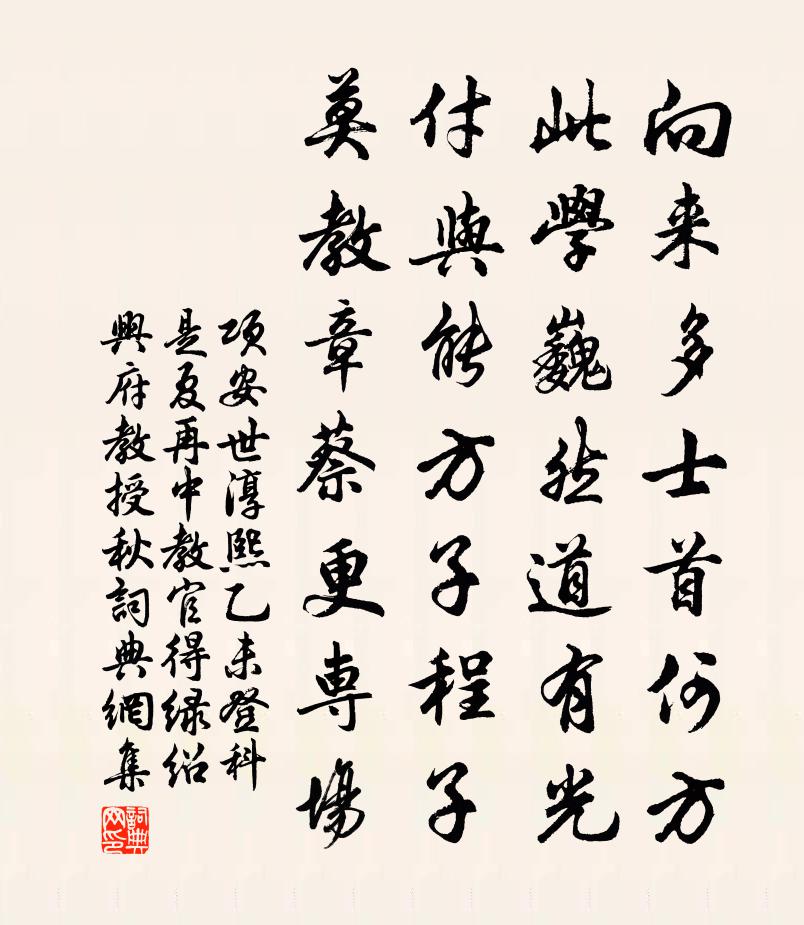 向来多士首何方
此學巍然道有光
付與能方子程子
莫教章蔡更専場
項安世淳熙乙未登科
是夏再中教官得緑紹
興府教授秋詞典網集
詞典网印